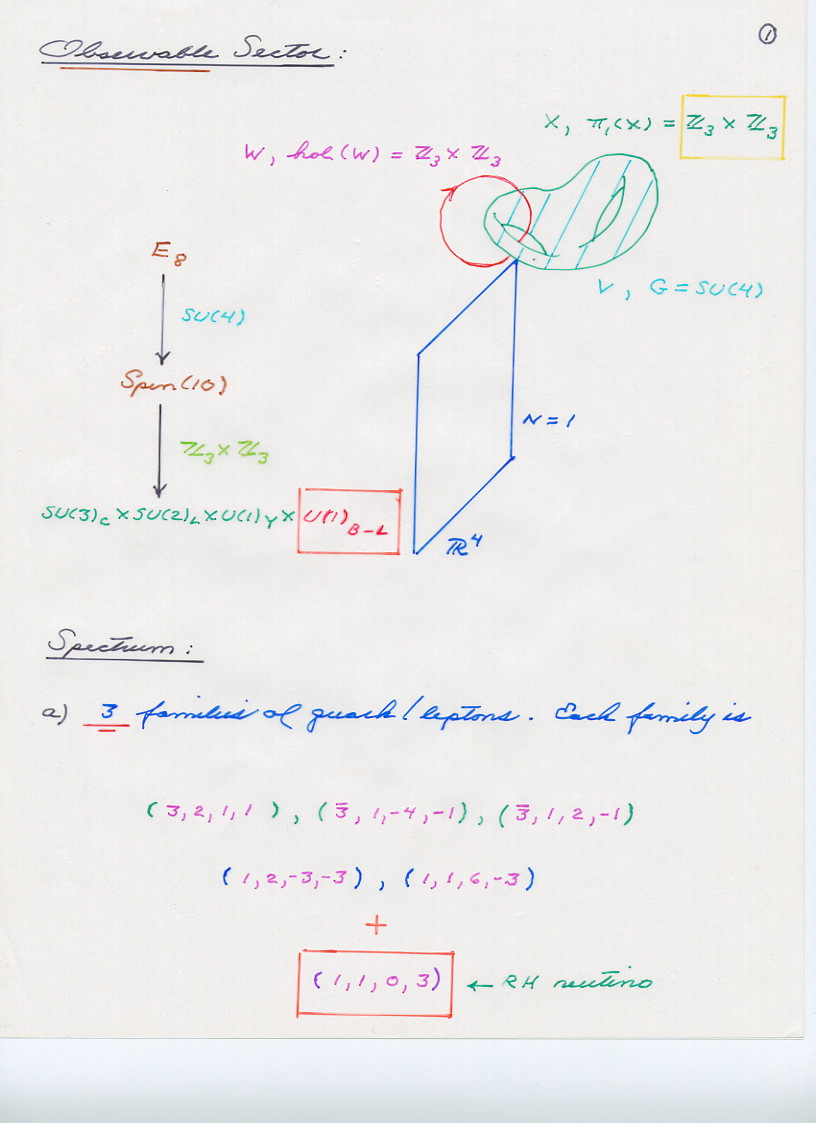 ①
Observable Sector:
X, π₁(X) = ℤ₃ × ℤ₃
W, hol(W) = ℤ₃ × ℤ₃
E₈
V, G = SU(4)
SU(4)
Spin(10)
N = 1
ℤ₃ × ℤ₃
SU(3)_C × SU(2)_L × U(1)_Y × U(1)_{B-L}
ℝ⁴
Spectrum:
a) 3 families of quark/leptons. Each family is
(3, 2, 1, 1), (3̅, 1, -4, -1), (3̅, 1, 2, -1)
(1, 2, -3, -3), (1, 1, 6, -3)
+
(1, 1, 0, 3) ← RH neutino